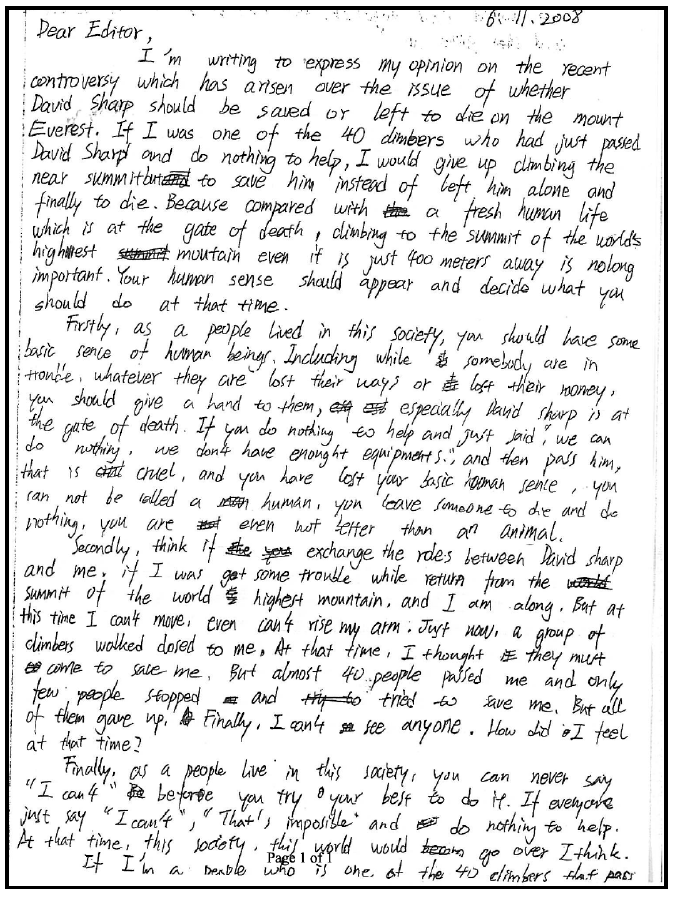 6.11.2008
Dear Editor,
I'm writing to express my opinion on the recent
controversy which has arisen over the issue of whether
David Sharp should be saved or left to die on the mount
Everest. If I was one of the 40 climbers who had just passed
David Sharp and do nothing to help, I would give up climbing the
near summit to save him instead of left him alone and
finally to die. Because compared with a fresh human life
which is at the gate of death, climbing to the summit of the world's
highest moutain even if is just 400 meters away is nolong
important. Your human sense should appear and decide what you
should do at that time.
Firstly, as a people lived in this society, you should have some
basic sence of human beings. Including while somebody are in
trouble, whatever they are lost their ways or lost their money,
you should give a hand to them, especially David sharp is at
the gate of death. If you do nothing to help and just said, "we can
do nothing, we don't have enought equipments.", and then pass him,
that is cruel, and you have lost your basic human sence, you
can not be called a human, you leave someone to die and do
nothing, you are even not better than an animal.
Secondly, think if exchange the roles between David sharp
and me. if I was got some trouble while return from the
summit of the world highest mountain, and I am along. But at
this time I can't move, even can't rise my arm. Just now, a group of
climbers walked closed to me. At that time, I thought they must
come to save me. But almost 40 people passed me and only
few people stopped and tried to save me. But all
of them gave up. Finally, I can't see anyone. How did I feel
at that time?
Finally, as a people live in this society, you can never say
"I can't" before you try your best to do it. If everyone
just say "I can't", "That's imposible" and do nothing to help.
At that time, this society, this world would go over I think.
Page 1 of 1
If I'm a people who is one of the 40 climbers that pass